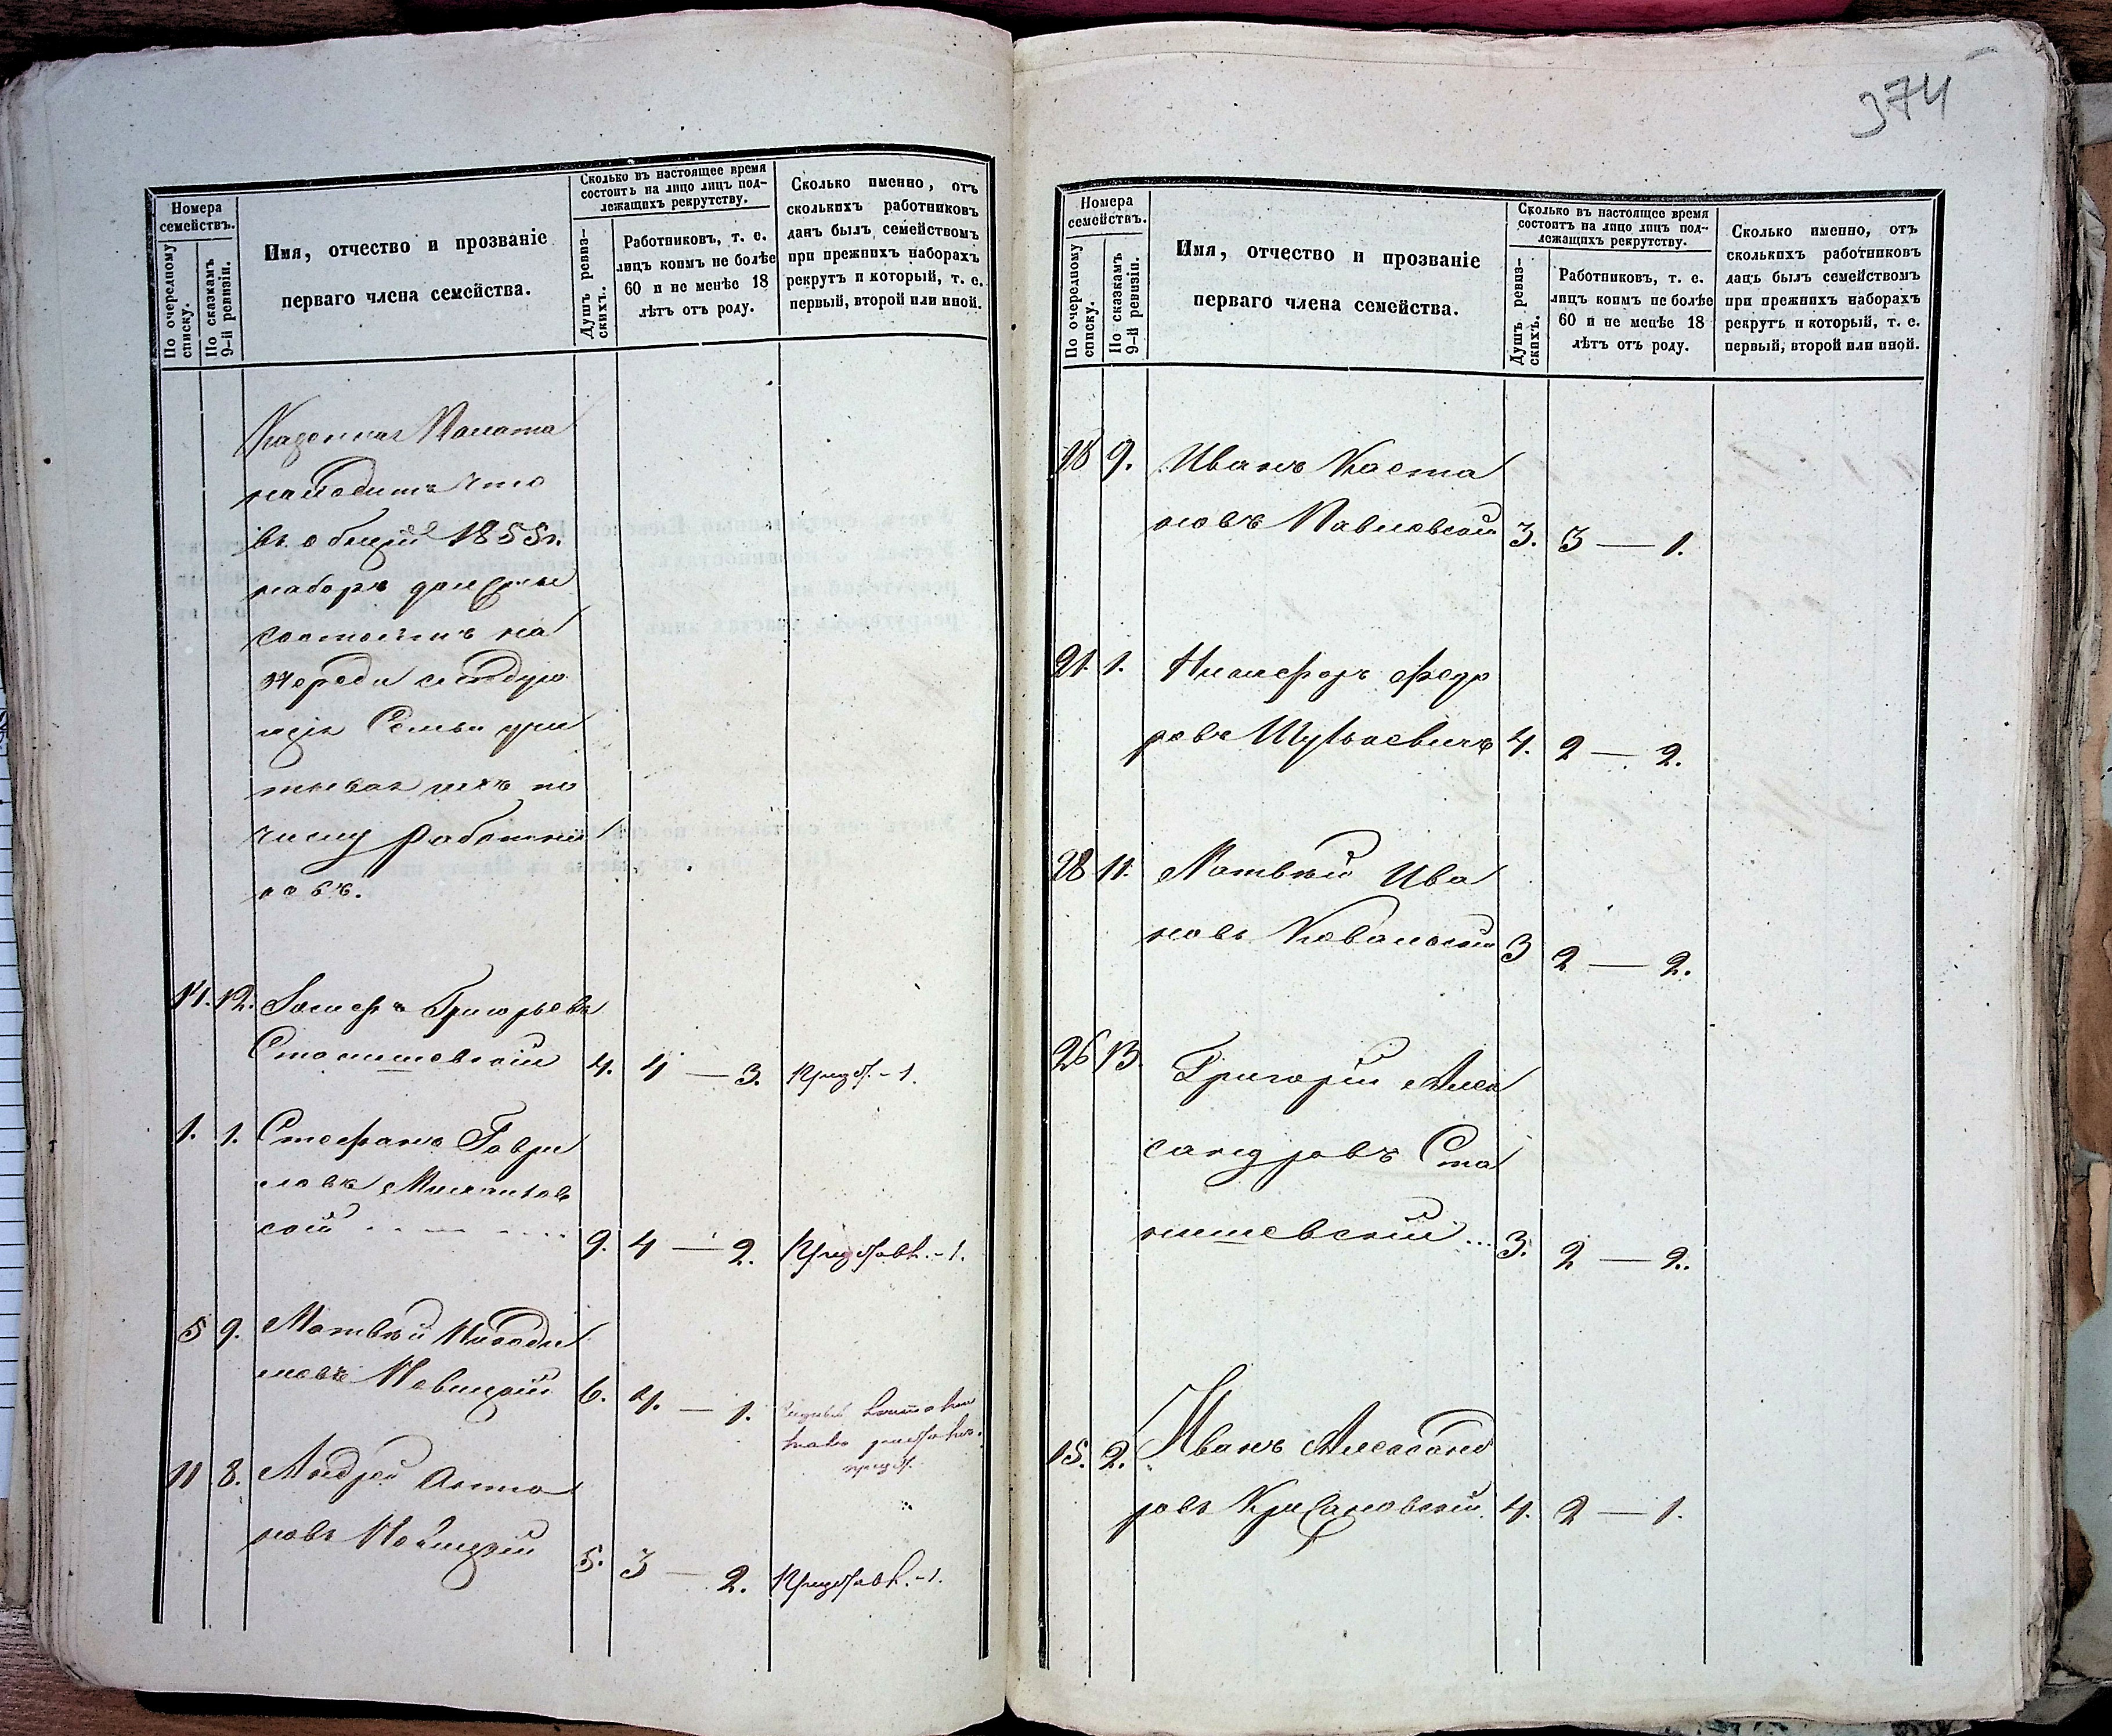 374
Номера
семействъ.
По очередному
списку.
По сказкамъ
9-й ревизіи.
Имя, отчество и прозваніе
перваго члена семейства.
Сколько въ настоящее время
состоитъ на лицо лицъ под-
лежащихъ рекрутству.
Душъ ревиз-
скихъ.
Работниковъ, т. е.
лицъ коимъ не болѣе
60 и не менѣе 18
лѣтъ отъ роду.
Сколько именно, отъ
сколькихъ работниковъ
данъ былъ семействомъ
при прежнихъ наборахъ
рекрутъ и который, т. е.
первый, второй или иной.
Казенная Палата
находитъ что
въ общій 1855г.
наборъ должны
состоять на
череди следую
щія Семьи учи
тывая ихъ по
числу работни
ковъ.
14. 12. Іосифъ Григорьевъ
Станишевскій 4. 4 — 3.
1. 1. Стефанъ Гаври
ловъ
скій 9. 4 — 2.
5 9. Матвѣй Никоди
мовъ Новицкій 6. 4. — 1.
11 8. Андрей Анто
новъ Новицкій 5. 3 — 2.
Номера
семействъ.
По очередному
списку.
По сказкамъ
9-й ревизіи.
Имя, отчество и прозваніе
перваго члена семейства.
Сколько въ настоящее время
состоитъ на лицо лицъ под-
лежащихъ рекрутству.
Душъ ревиз-
скихъ.
Работниковъ, т. е.
лицъ коимъ не болѣе
60 и не менѣе 18
лѣтъ отъ роду.
Сколько именно, отъ
сколькихъ работниковъ
данъ былъ семействомъ
при прежнихъ наборахъ
рекрутъ и который, т. е.
первый, второй или иной.
18 9. Иванъ Каета
новъ Павловскій 3. 3 — 1.
21. 1. Никифоръ Федо
ровъ 4. 2 — 2.
28 11. Матвѣй Ива
новъ Ковальскій 3 2 — 2.
26 13. Григорій Алек
сандровъ Ста
нишевскій... 3. 2 — 2.
15. 2. Иванъ Александ
ровъ Крижановскій 4. 2 — 1.